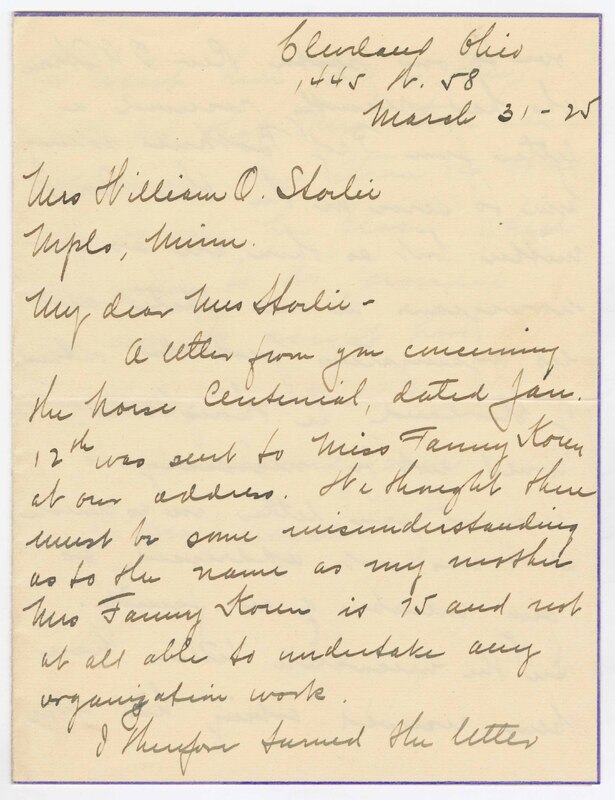 Cleveland Ohio
1445 W. 58
March 31 - 25
Mrs William O. Storlie
Mpls, Minn.
My dear Mrs Storlie -
A letter from you concerning
the Norse Centenial, dated Jan.
12th was sent to Miss Fanny Koren
at our address. We thought there
must be some misunderstanding
as to the name as my mother
Mrs Fanny Koren is 75 and not
at all able to undertake any
organization work.
I therefore turned the letter